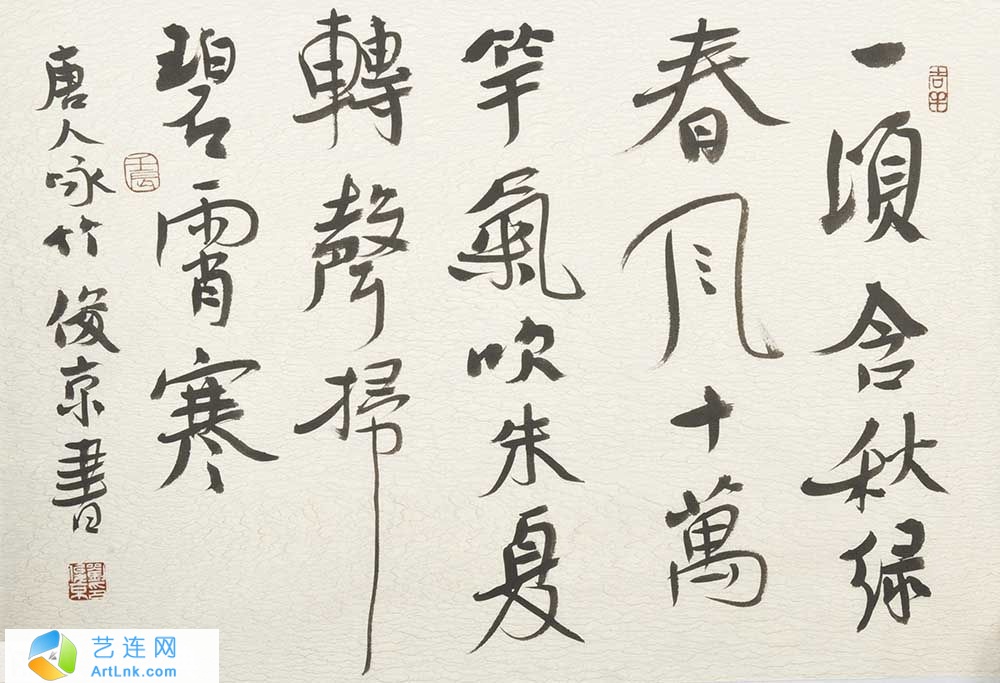 一頃含秋绿
春風十萬
竿氣吹朱夏
轉聲掃
碧霄寒
唐人咏竹 俊京書
壬辰
艺连网
ArtLnk.com